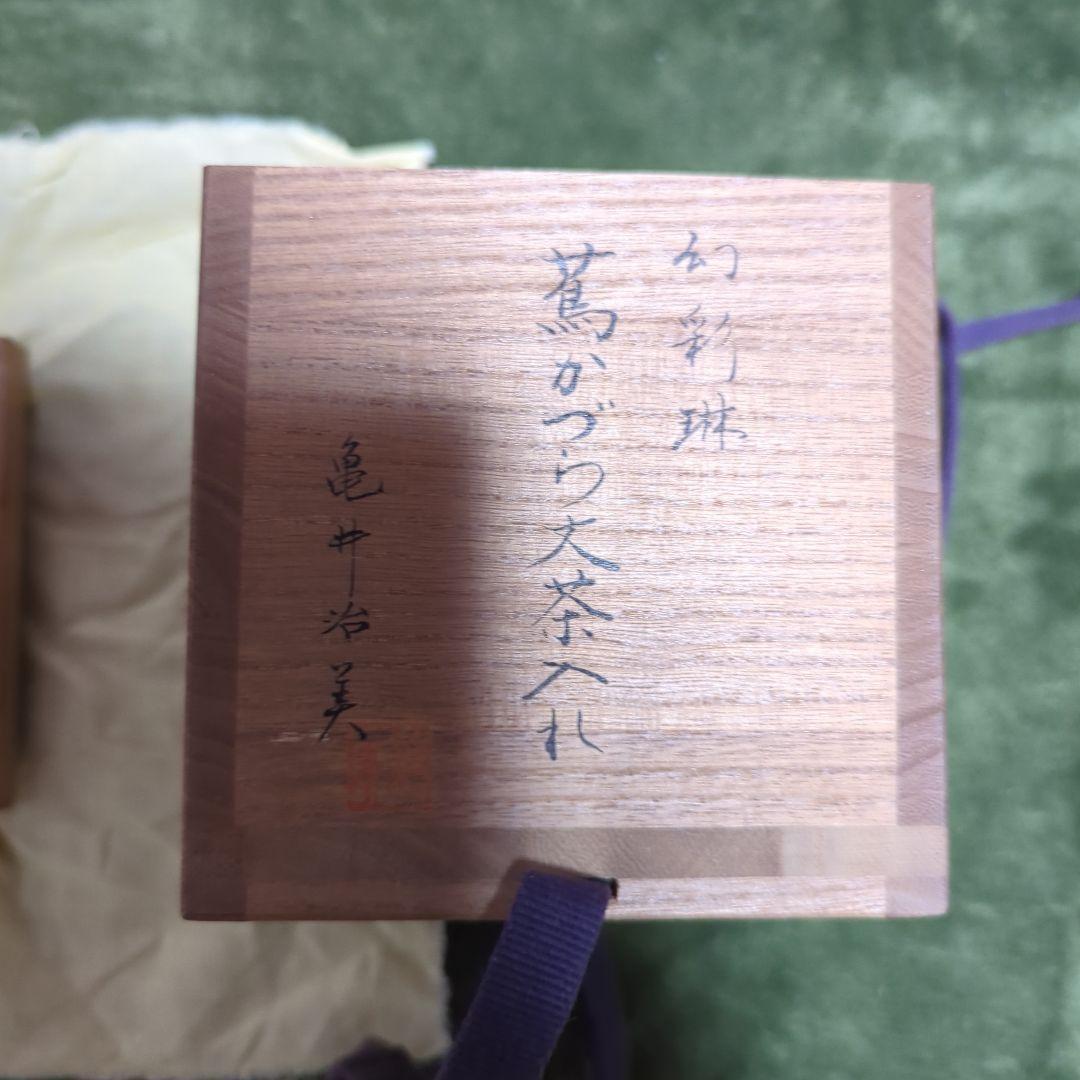 幻彩琳
蔦かづら大茶入れ
亀井治美